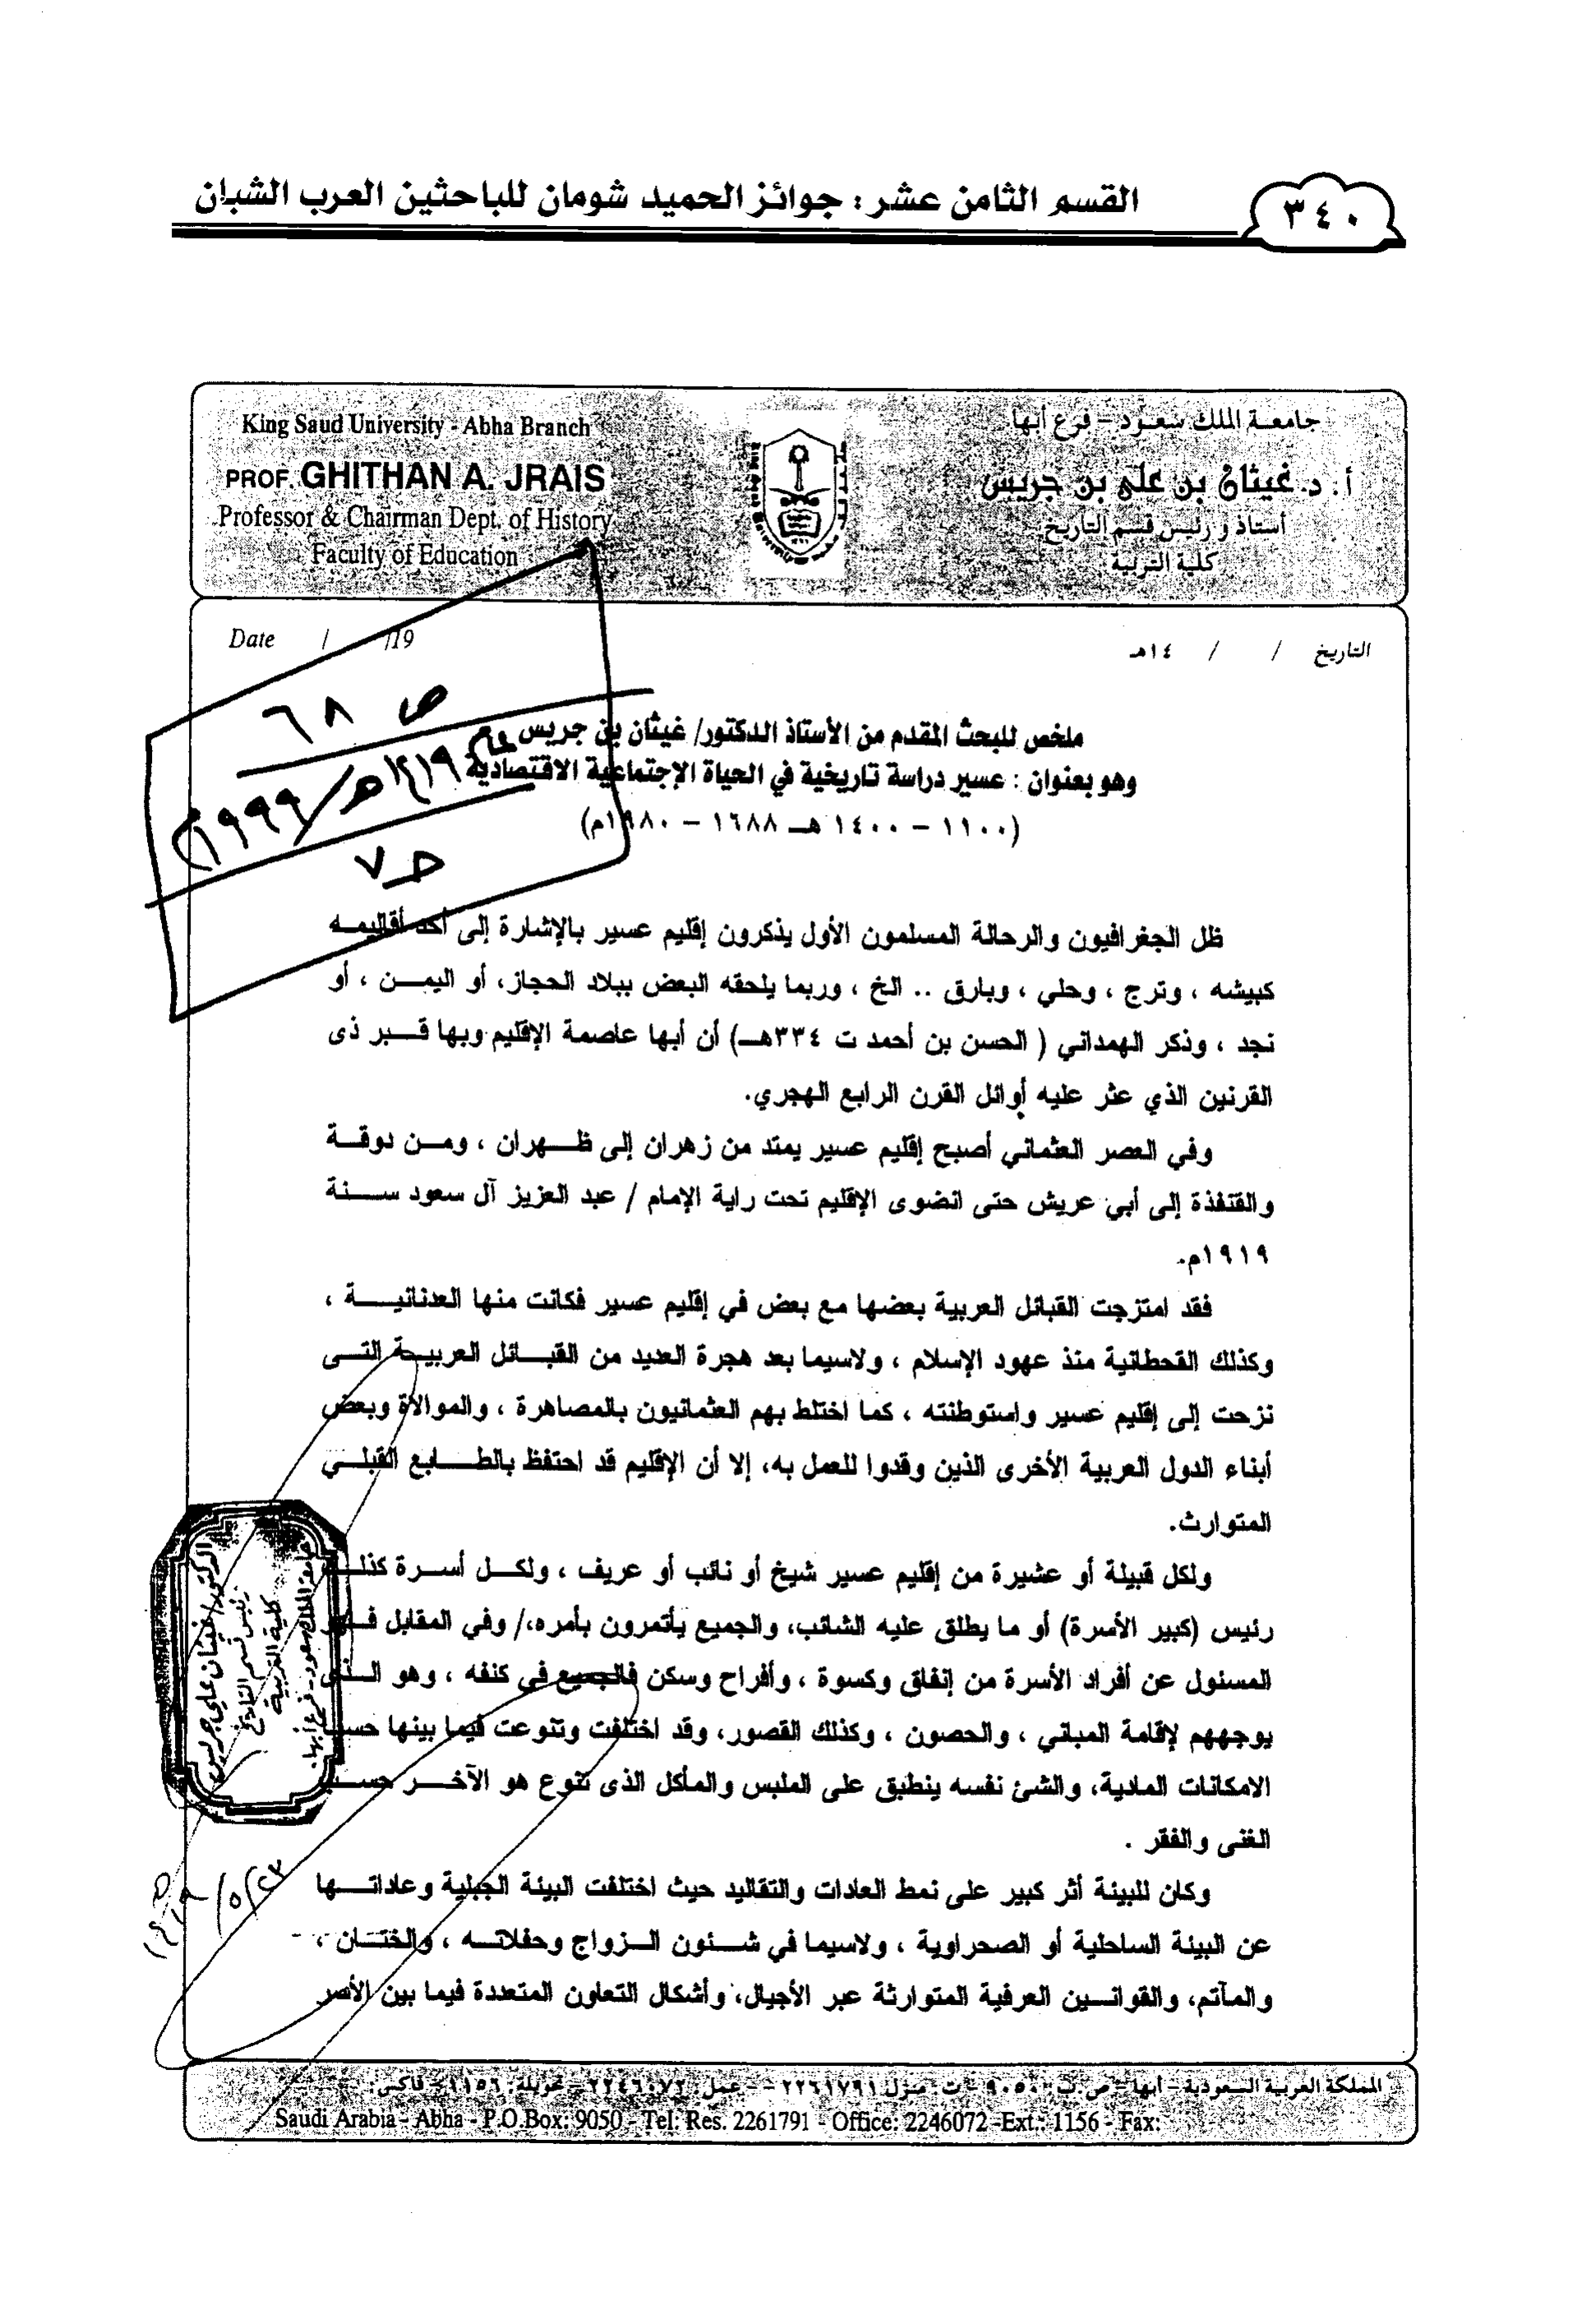 القسم الثامن عشر : جوائز الحميد شومان للباحثين العرب الشبان
٣٤٠
جامعة الملك سعود - فرع أبها
أ. د. غيثان بن علي بن جريس
أستاذ و رئيس قسم التاريخ
كلية التربية
King Saud University - Abha Branch
PROF. GHITHAN A. JRAIS
Professor & Chairman Dept. of History
Faculty of Education
التاريخ / / ١٤هـ
Date / /19
ص ٦٨
١٤١٩هـ/١٩٩٩م
ح٧
ملخص للبحث المقدم من الأستاذ الدكتور/ غيثان بن جريس
وهو بعنوان : عسير دراسة تاريخية في الحياة الإجتماعية الاقتصادية
(١١٠٠ - ١٤٠٠ هـ ١٦٨٨ - ١٩٨٠م)
ظل الجغرافيون والرحالة المسلمون الأول يذكرون إقليم عسير بالإشارة إلى أحد أقاليمه
كبيشه ، وترج ، وحلي ، وبارق .. الخ ، وربما يلحقه البعض ببلاد الحجاز، أو اليمن ، أو
نجد ، وذكر الهمداني ( الحسن بن أحمد ت ٣٣٤هـ) أن أبها عاصمة الإقليم وبها قبر ذى
القرنين الذي عثر عليه أوائل القرن الرابع الهجري.
وفي العصر العثماني أصبح إقليم عسير يمتد من زهران إلى ظهران ، ومن دوقة
والقنفذة إلى أبي عريش حتى انضوى الإقليم تحت راية الإمام / عبد العزيز آل سعود سنة
١٩١٩م.
فقد امتزجت القبائل العربية بعضها مع بعض في إقليم عسير فكانت منها العدنانية ،
وكذلك القحطانية منذ عهود الإسلام ، ولاسيما بعد هجرة العديد من القبائل العربية التى
نزحت إلى إقليم عسير واستوطنته ، كما اختلط بهم العثمانيون بالمصاهرة ، والموالاة وبعض
أبناء الدول العربية الأخرى الذين وفدوا للعمل به، إلا أن الإقليم قد احتفظ بالطابع القبلي
المتوارث.
ولكل قبيلة أو عشيرة من إقليم عسير شيخ أو نائب أو عريف ، ولكل أسرة كذلك
رئيس (كبير الأسرة) أو ما يطلق عليه الشائب، والجميع يأتمرون بأمره،/ وفي المقابل فهو
المسئول عن أفراد الأسرة من إنفاق وكسوة ، وأفراح وسكن فالجميع في كنفه ، وهو الذى
يوجههم لإقامة المباني ، والحصون ، وكذلك القصور، وقد اختلفت وتنوعت فيما بينها حسب
الامكانات المادية، والشئ نفسه ينطبق على الملبس والمأكل الذى تنوع هو الآخر حسب
الغنى والفقر .
وكان للبيئة أثر كبير على نمط العادات والتقاليد حيث اختلفت البيئة الجبلية وعاداتها
عن البيئة الساحلية أو الصحراوية ، ولاسيما في شئون الزواج وحفلاته ، والختان ،
والمآتم، والقوانين العرفية المتوارثة عبر الأجيال، وأشكال التعاون المتعددة فيما بين الأسر
جامعة الملك سعود - فرع أبها
كلية التربية
رئيس قسم التاريخ
الدكتور/ غيثان علي جريس
المملكة العربية السعودية - أبها - ص.ب: ٩٠٥٠ - ت: منزل ٢٢٦١٧٩١ - عمل: ٢٢٤٦٠٧٢ - تحويلة: ١١٥٦ - فاكس:
Saudi Arabia - Abha - P.O.Box: 9050 - Tel: Res. 2261791 - Office: 2246072 -Ext.: 1156 - Fax: